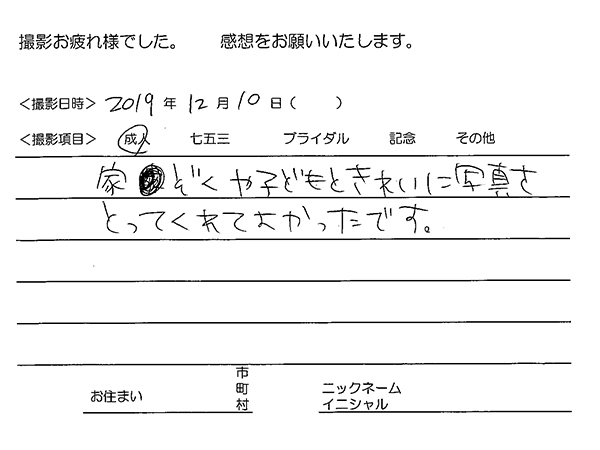 撮影お疲れ様でした。 感想をお願いいたします。
<撮影日時> 2019 年 12 月 10 日 ( )
<撮影項目> 成人 七五三 ブライダル 記念 その他
家ぞくや子どもときれいに写真を
とってくれてよかったです。
お住まい 市町村 ニックネーム イニシャル